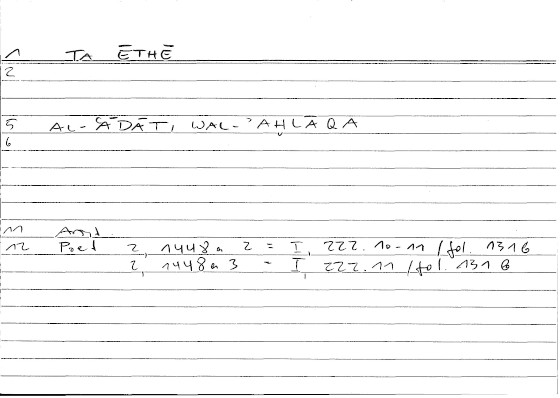 1 TA ĒTHĒ
2
5 AL-ʿĀDĀT, WAL-ʾAḪLĀQA
6
11 Arist
12 Poet 2, 1448a 2 = I, 222.10-11 / fol. 131b
2, 1448a 3 = I, 222.11 / fol. 131b